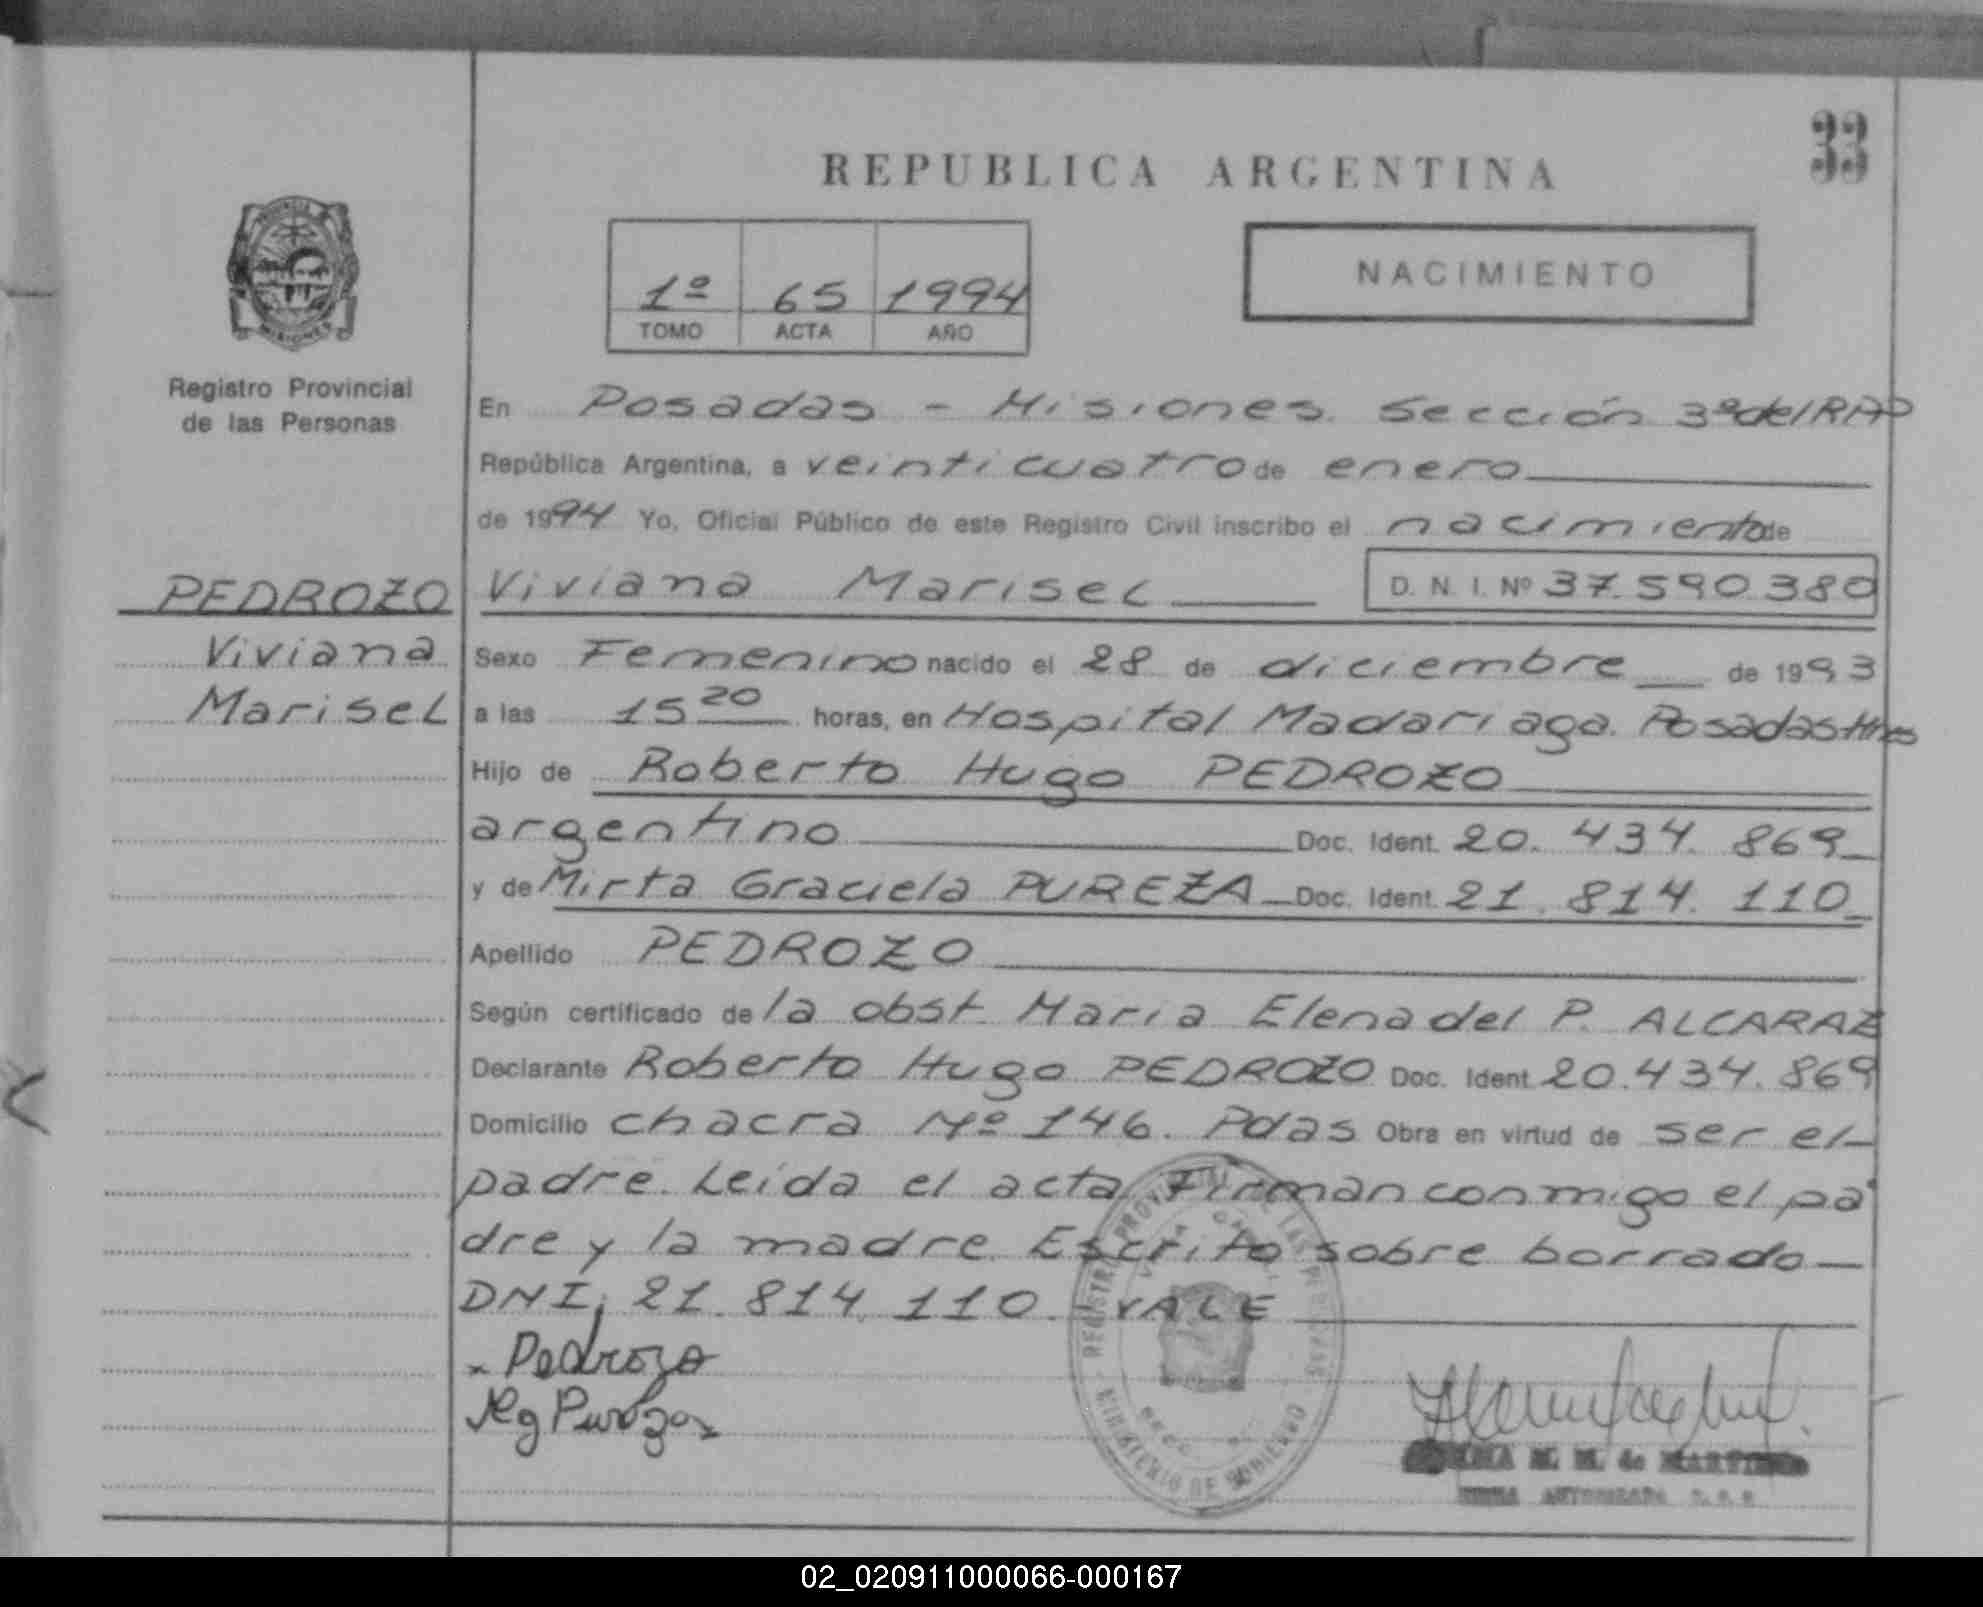 33
REPUBLICA ARGENTINA
PROVINCIA DE
MISIONES
1º 65 1994
TOMO ACTA AÑO
NACIMIENTO
Registro Provincial
de las Personas
En Posadas - Misiones. Sección 3ª del RPP
República Argentina, a veinticuatro de enero
de 1994 Yo, Oficial Público de este Registro Civil inscribo el nacimiento de
PEDROZO
Viviana
Marisel
Viviana Marisel D. N. I. Nº 37.590.380
Sexo Femenino nacido el 28 de diciembre de 1993
a las 15 20 horas, en Hospital Madariaga. Posadas Mnes
Hijo de Roberto Hugo PEDROZO
argentino Doc. Ident. 20.434.869
y de Mirta Graciela PUREZA Doc. Ident. 21.814.110
Apellido PEDROZO
Según certificado de la obst. Maria Elena del P. ALCARAZ
Declarante Roberto Hugo PEDROZO Doc. Ident. 20.434.869
Domicilio chacra Nº 146. Pdas Obra en virtud de ser el
padre. Leida el acta Firman conmigo el pa
dre y la madre. Escrito sobre borrado
DNI, 21.814.110. VALE
Pedrozo
Mg Pureza
REGISTRO PROVINCIAL DE LAS PERSONAS
MINISTERIO DE GOBIERNO
M. M. de
FIRMA AUTORIZADA
02_020911000066-000167